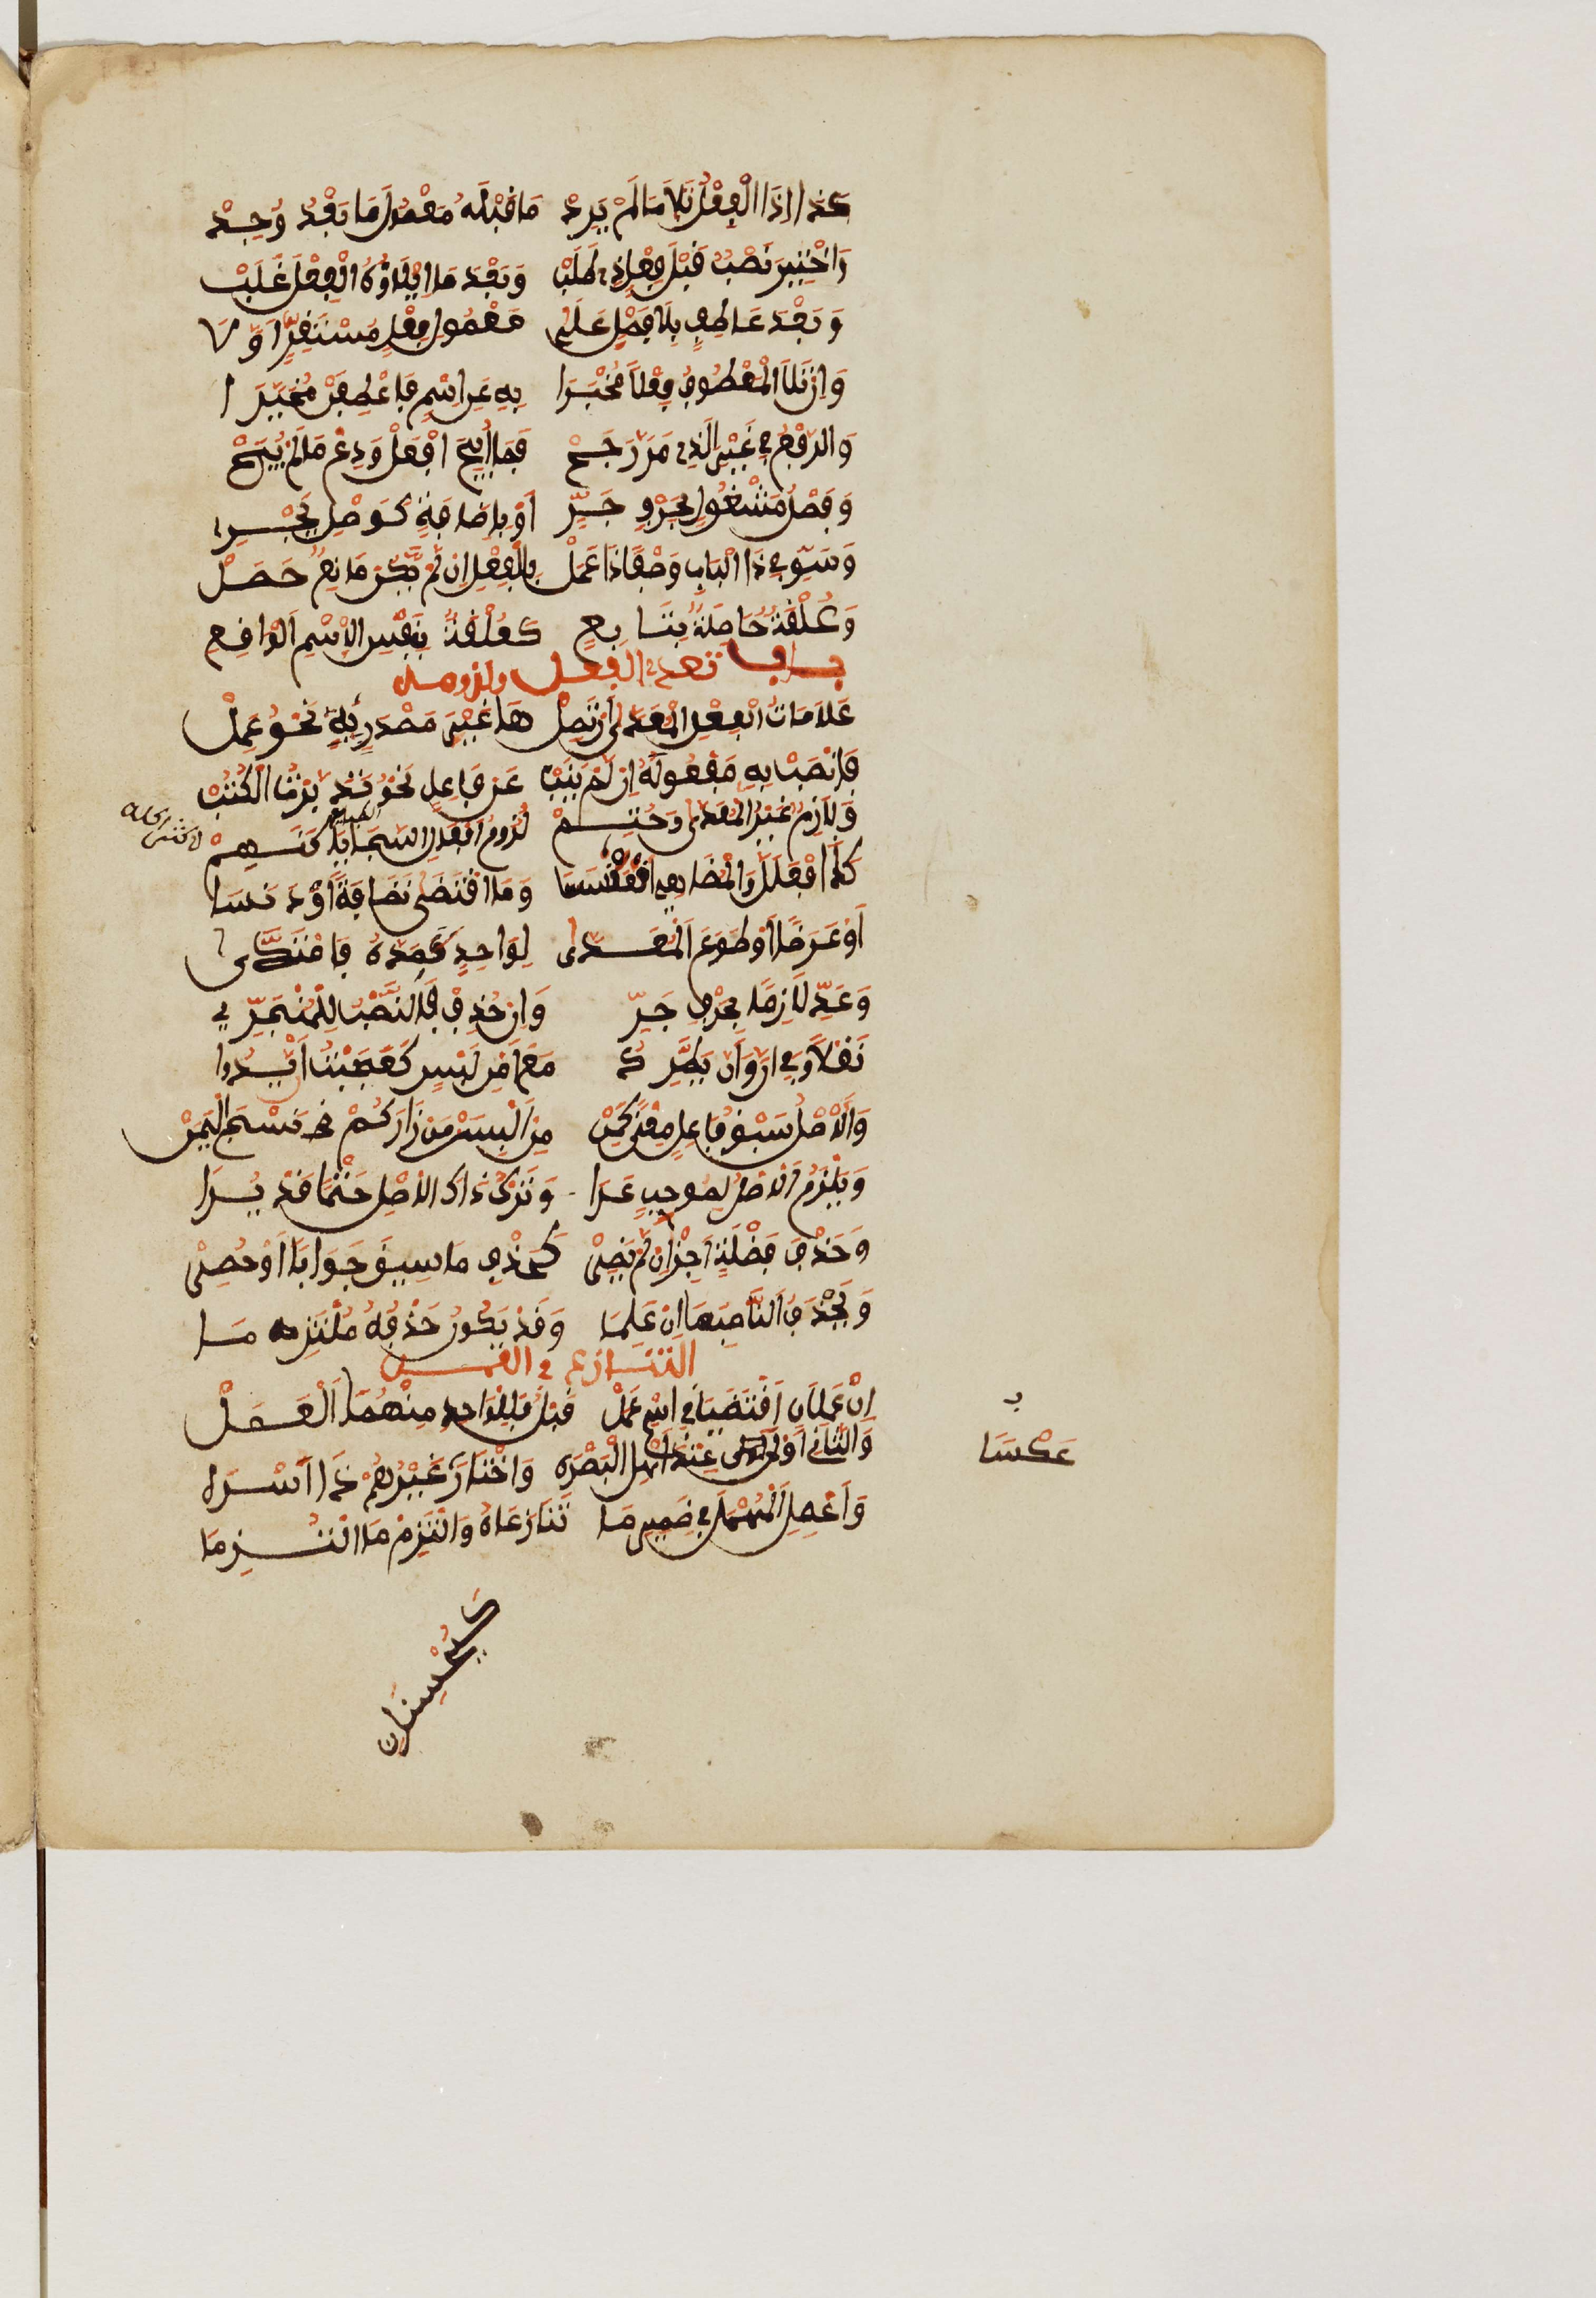 كَذَا إِذَا الْفِعْلُ تَلَا مَا لَمْ يَرِدْ مَا قَبْلَهُ مَعْمُولَ مَا بَعْدُ وُجِدْ
وَاخْتِيرَ نَصْبٌ قَبْلَ فِعْلٍ ذِي طَلَبْ وَبَعْدَ مَا إِيلَاؤُهُ الْفِعْلَ غَلَبْ
وَبَعْدَ عَاطِفٍ بِلَا فَصْلٍ عَلَى مَعْمُولِ فِعْلٍ مُسْتَقِرٍّ أَوَّلَا
وَإِنْ تَلَا الْمَعْطُوفُ فِعْلًا مُخْبَرَا بِهِ عَنِ اسْمٍ فَاعْطِفَنْ مُخَيَّرَا
وَالرَّفْعُ فِي غَيْرِ الَّذِي مَرَّ رَجَحْ فَمَا أُبِيحَ افْعَلْ وَدَعْ مَا لَمْ يُبَحْ
وَفَصْلُ مَشْغُولٍ بِحَرْفِ جَرِّ أَوْ بِإِضَافَةٍ كَوَصْلٍ يَجْرِي
وَسَوِّ فِي ذَا الْبَابِ وَصْفًا ذَا عَمَلْ بِالْفِعْلِ إِنْ لَمْ يَكُ مَانِعٌ حَصَلْ
وَعُلْقَةٌ حَاصِلَةٌ بِتَابِعِ كَعُلْقَةٍ بِنَفْسِ الِاسْمِ الْوَاقِعِ
باب تعدي الفعل ولزومه
عَلَامَاتُ الْفِعْلِ الْمُعَدَّى أَنْ تَصِلْ هَا غَيْرِ مَصْدَرٍ بِهِ نَحْوُ عَمِلْ
فَانْصِبْ بِهِ مَفْعُولَهُ إِنْ لَمْ يَنُبْ عَنْ فَاعِلٍ نَحْوُ تَدَبَّرْتُ الْكُتُبْ
وَلَازِمٌ غَيْرُ الْمُعَدَّى وَحُتِمْ لُزُومُ أَفْعَالِ السَّجَايَا كَنَهِمْ
كَذَا افْعَلَلَّ وَالْمُضَاهِي اقْعَنْسَسَا وَمَا اقْتَضَى نَظَافَةً أَوْ دَنَسَا
أَوْ عَرَضًا أَوْ طَاوَعَ الْمُعَدَّى لِوَاحِدٍ كَمَدَّهُ فَامْتَدَّى
وَعَدِّ لَازِمًا بِحَرْفِ جَرِّ وَإِنْ حُذِفْ فَالنَّصْبُ لِلْمُنْجَرِّ
نَقْلًا وَفِي أَنَّ وَأَنْ يَطَّرِدُ مَعْ أَمْنِ لَبْسٍ كَعَجِبْتُ أَنْ يَدُوا
وَالْأَصْلُ سَبْقُ فَاعِلٍ مَعْنًى كَمَنْ مِنْ أَلْبِسَنْ مَنْ زَارَكُمْ نَسْجَ الْيَمَنْ
وَيَلْزَمُ الْأَصْلُ لِمُوجِبٍ عَرَا وَتَرْكُ ذَاكَ الْأَصْلِ حَتْمًا قَدْ يُرَا
وَحَذْفَ فَضْلَةٍ أَجِزْ إِنْ لَمْ يَضِرْ كَحَذْفِ مَا سِيقَ جَوَابًا أَوْ حُصِرْ
وَيُحْذَفُ النَّاصِبُهَا إِنْ عُلِمَا وَقَدْ يَكُونُ حَذْفُهُ مُلْتَزَمَا
التنازع في العمل
إِنْ عَامِلَانِ اقْتَضَيَا فِي اسْمٍ عَمَلْ قَبْلُ فَلِلْوَاحِدِ مِنْهُمَا الْعَمَلْ
وَالثَّانِي أَوْلَى عِنْدَ أَهْلِ الْبَصْرَهْ وَاخْتَارَ غَيْرُهُمْ ذَا أَسْرَهْ
عَكْسَا
وَأَعْمِلِ الْمُهْمَلَ فِي ضَمِيرِ مَا تَنَازَعَاهُ وَالْتَزِمْ مَا الْتُزِمَا
كَيُحْسِنَانِ